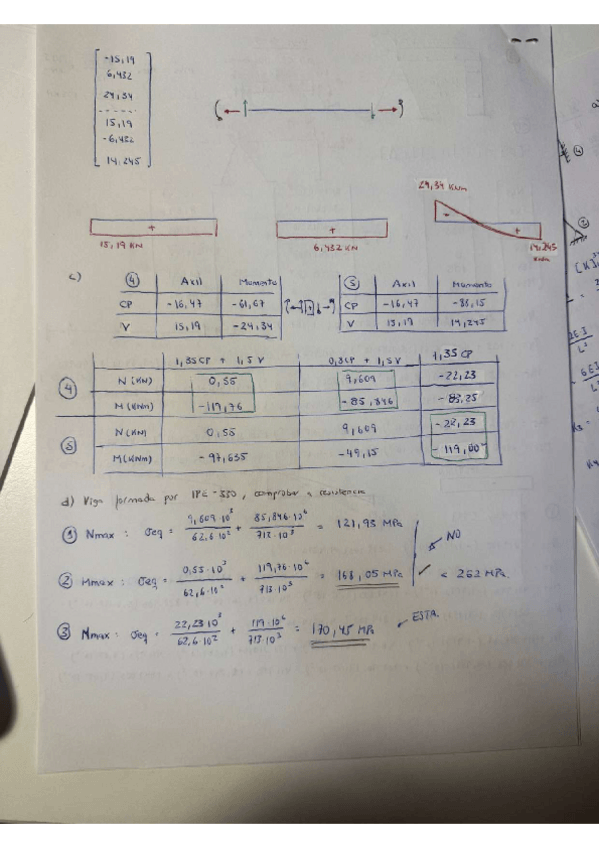 -15,19
6,432
24,34
15,19
-6,432
14,245
24,34 KNm
+
+
-
+
15,19 KN
6,432 KN
14,245
KNm
c)
④ Axil Momento
CP -16,47 -61,67
V 15,19 -24,34
⑤ Axil Momento
CP -16,47 -88,15
V 15,19 14,245
1,35CP + 1,5V 0,8CP + 1,5V 1,35 CP
④ N (KN) 0,55 9,609 -22,23
M (KNm) -119,76 -85,846 -83,25
⑤ N (KN) 0,55 9,609 -22,23
M (KNm) -97,635 -49,15 -119,00
d) Viga formada por IPE-330, comprobar a resistencia
① Nmax: σeq = 9,609·10³ / 62,6·10² + 85,846·10⁶ / 713·10³ = 121,93 MPa
NO
② Mmax: σeq = 0,55·10³ / 62,6·10² + 119,76·10⁶ / 713·10³ = 168,05 MPa ✓ < 262 MPa.
③ Nmax: σeq = 22,23·10³ / 62,6·10² + 119·10⁶ / 713·10³ = 170,45 MPa ✓ ESTA.
a)
④
②
[K]
2EI
L²
6EI
L²